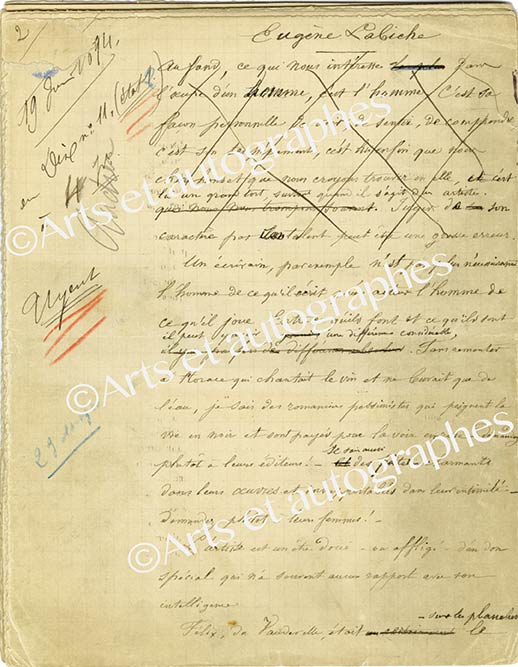 2
Eugène Labiche
19 Juin 1894.
en Dix no 11. (état)
Urgent
29 aug
Au fond, ce qui nous intéresse dans
l'œuvre d'un homme, c'est l'homme. C'est sa
façon personnelle de voir, de sentir, de comprendre
c'est son tempérament, c'est lui enfin que nous
croyons trouver en elle, et c'est
là un grand tort, surtout quand il s'agit d'un artiste.
que nous nous trompons souvent. Juger de son
caractère par son talent peut être une grosse erreur.
Un écrivain, par exemple n'est pas nécessairement
l'homme de ce qu'il écrit, ni un acteur l'homme de
ce qu'il joue. Entre ce qu'ils font et ce qu'ils sont
il peut y avoir une différence considérable,
Sans remonter
à Horace qui chantait le vin et ne buvait que de
l'eau, je sais des romanciers pessimistes qui peignent la
vie en noir et sont payés pour la voir en rose. Demandez
plutôt à leurs éditeurs! — Je sais aussi des poètes charmants
dans leurs œuvres et insupportables dans leur intimité —
Demandez plutôt à leurs femmes! —
Un artiste est un être doué — ou affligé — d'un don
spécial qui n'a souvent aucun rapport avec son
intelligence.
— sur les planches
Félix, du Vaudeville, était le
©Arts et autographes
©Arts et autographes
©Arts et autographes
©Arts et autographes